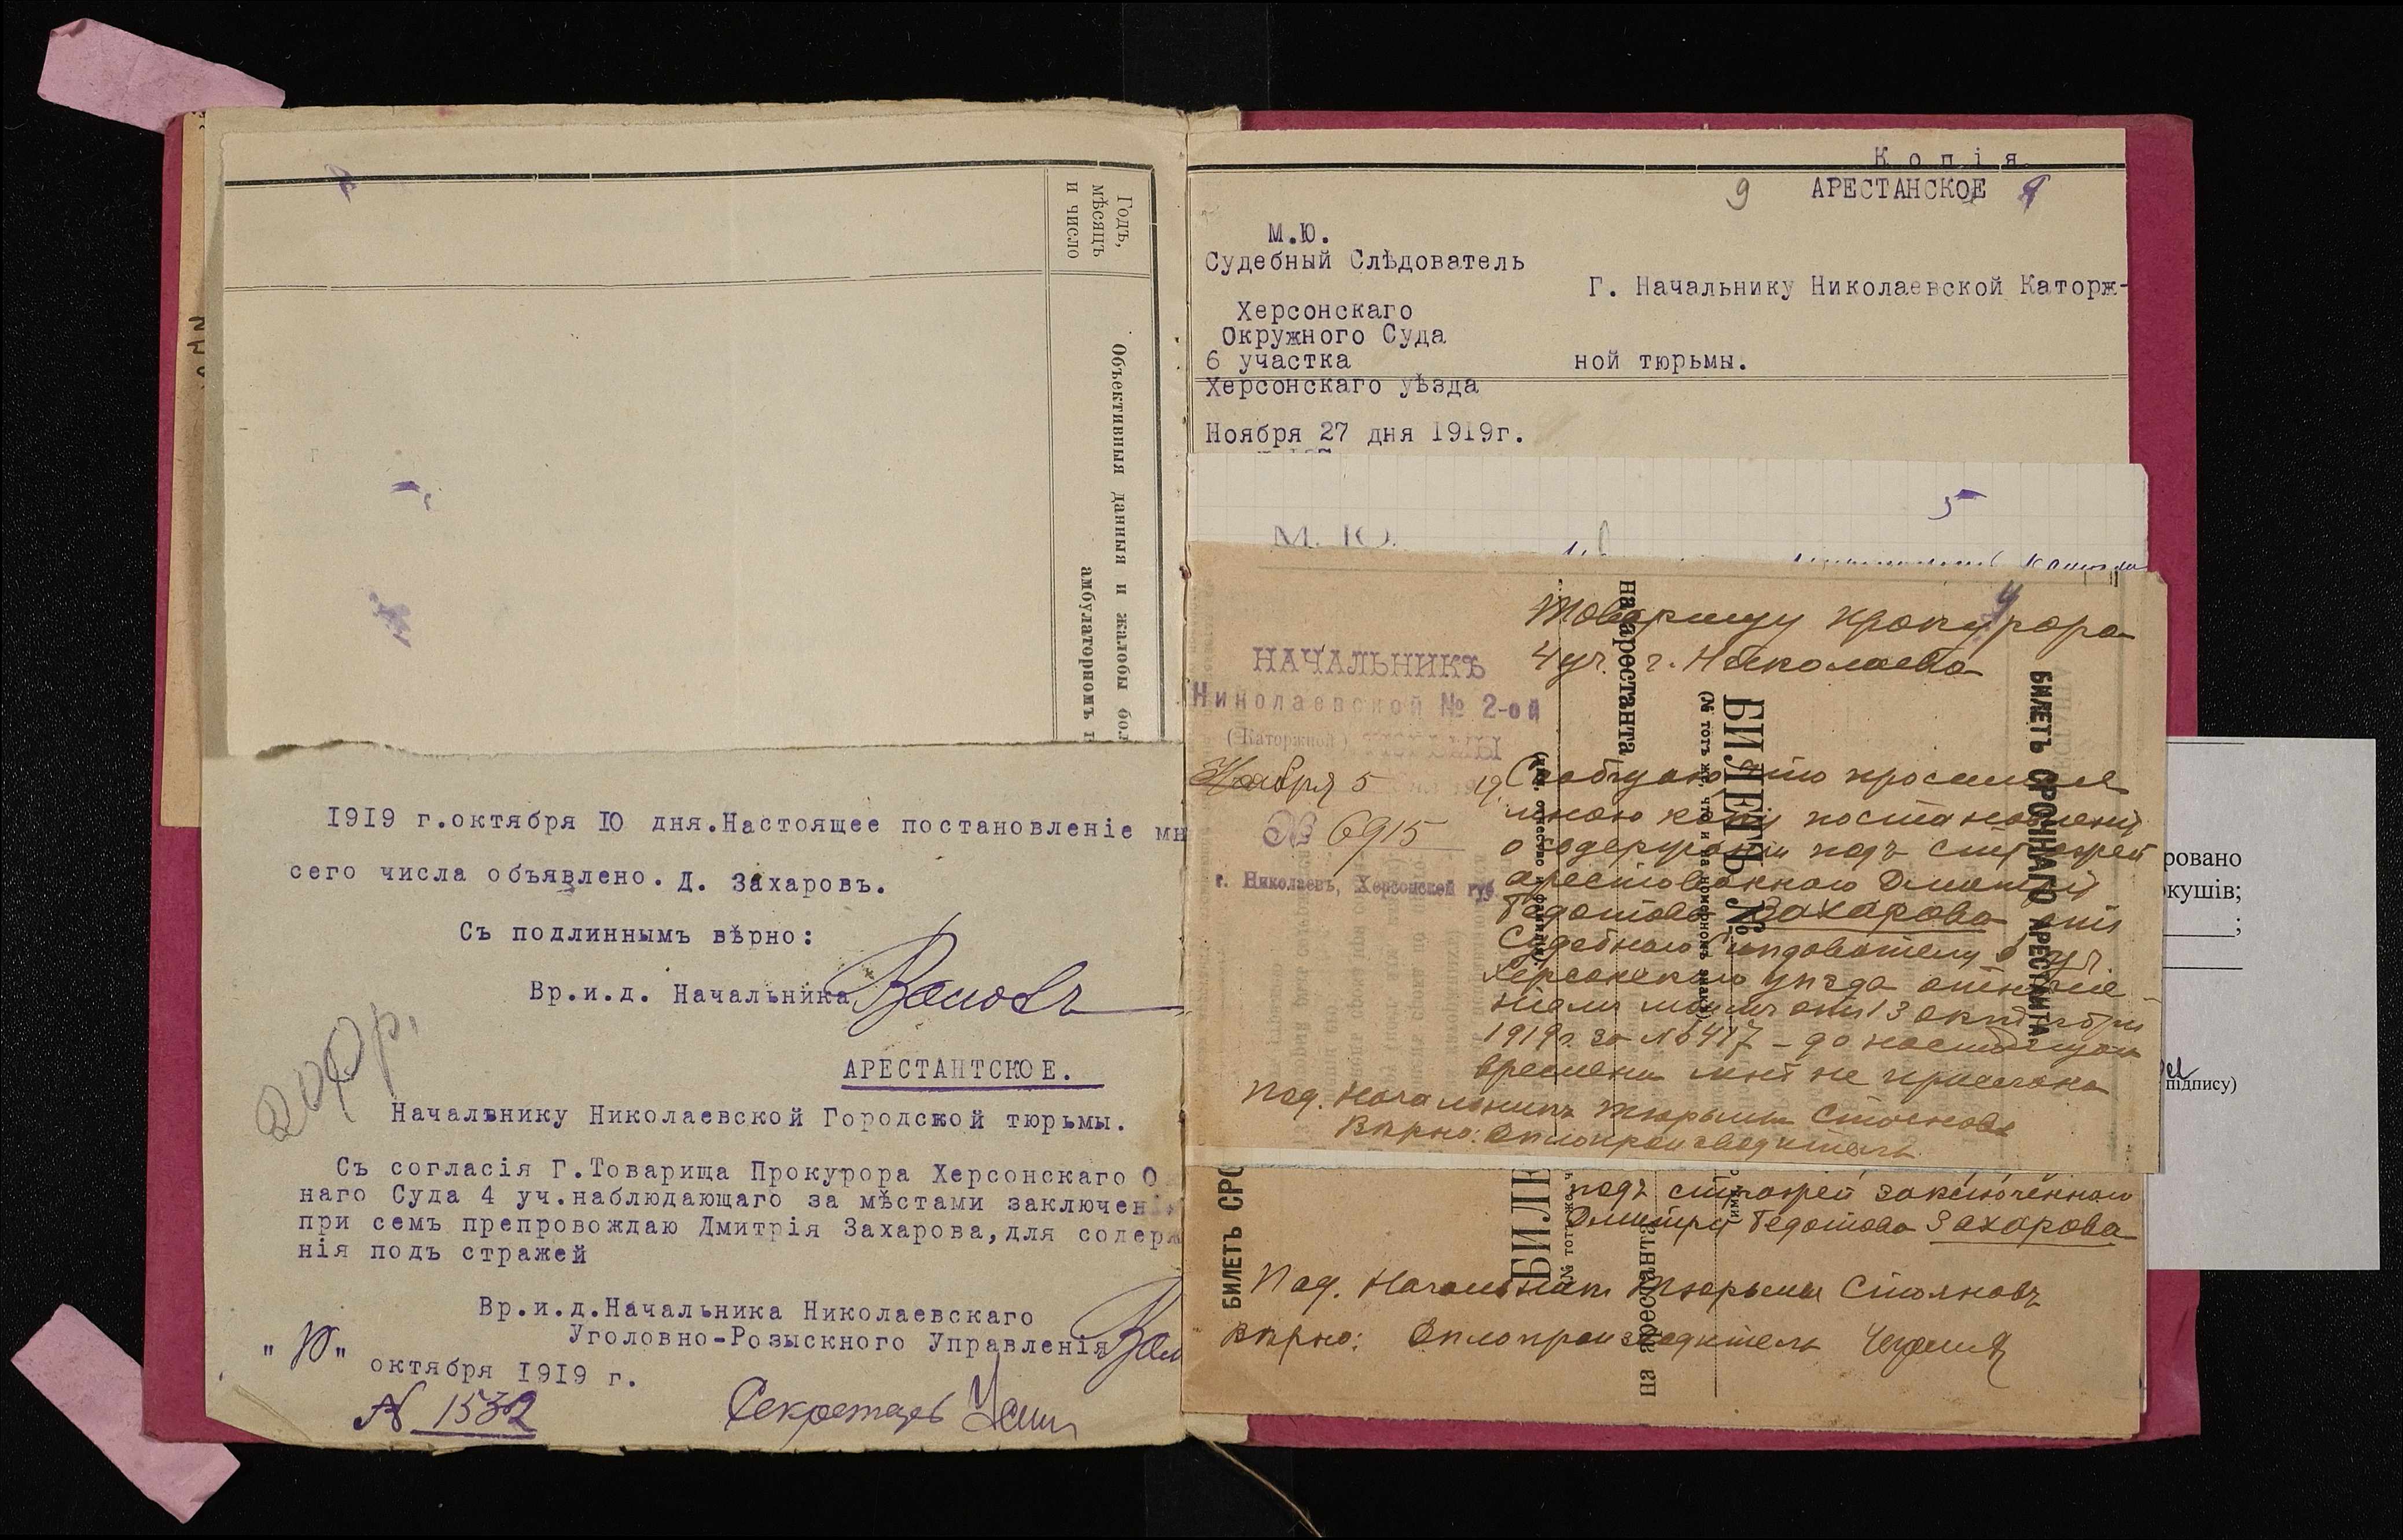 Годъ,
мѣсяцъ
и число
Объективныя данныя и жалобы бол
амбулаторномъ
1919 г.октября 10 дня.Настоящее постановленіе мн
сего числа объявлено. Д. Захаровъ.
Съ подлиннымъ вѣрно:
Вр.и.д. Начальника
200р.
АРЕСТАНТСКОЕ.
Начальнику Николаевской Городской тюрьмы.
Съ согласія Г.Товарища Прокурора Херсонскаго О
наго Суда 4 уч.наблюдающаго за мѣстами заключен
при семъ препровождаю Дмитрія Захарова,для содерж
нія подъ стражей
Вр.и.д.Начальника Николаевскаго
Уголовно-Розыскного Управленія
"10"
октября 1919 г.
№ 1532
Секретарь
Копія
9 АРЕСТАНСКОЕ
М.Ю.
Судебный Слѣдователь
Г. Начальнику Николаевской Каторж-
Херсонскаго
Окружного Суда
6 участка
ной тюрьмы.
Херсонскаго уѣзда
Ноября 27 дня 1919г.
5
М. Ю.
4
Товарищу прокурора
4 уч. г. Николаева
НАЧАЛЬНИКЪ
Николаевской № 2-ой
(Каторжной)
Ноября 5 19
№ 6915
г. Николаевъ, Херсонской губ.
Сообщаю что просимая
мною копія постановленія
о содержаніи подъ стражей
арестованнаго Дмитрія
Федотова Захарова отъ
Судебнаго Слѣдователя 6 уч.
Херсонскаго уѣзда отноше-
ніемъ моимъ отъ 13 октября
1919г. за № 6417 – до настоящаго
времени мнѣ не прислана
Под. Начальникъ тюрьмы Стояновъ
Вѣрно: Дѣлопроизводитель
на арестанта
БИЛЕТЪ №
(№ тотъ же, что и на номерномъ знакѣ)
(имя, отчество и фамилія):
БИЛЕТЪ СРОЧНАГО АРЕСТАНТА.
подъ стражей заключённаго
Дмитрія Федотова Захарова
Под. Начальникъ Тюрьмы Стояновъ
Вѣрно: Дѣлопроизводитель
БИЛЕТЪ СРО
БИЛЕ
№ тотъ же, ч
на арестанта
ровано
кушів;
;
підпису)